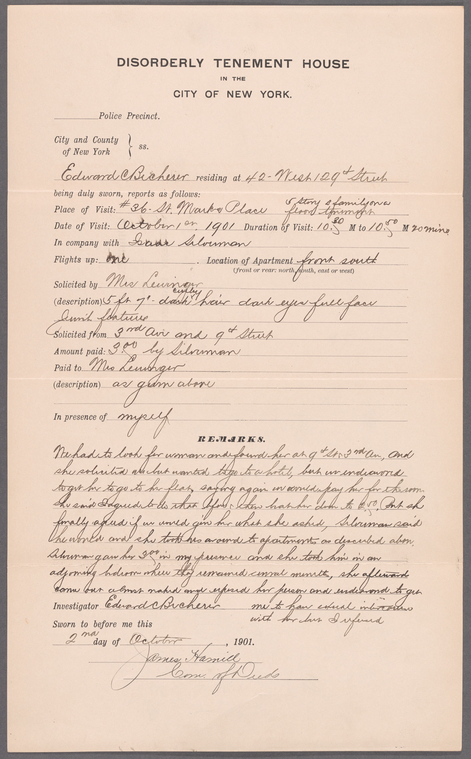 DISORDERLY TENEMENT HOUSE
IN THE
CITY OF NEW YORK.
Police Precinct.
City and County
of New York } ss.
Edward C Bicherer residing at 42- West 129th Street
being duly sworn, reports as follows:
Place of Visit: #36- St. Marks Place 5 story 2 family on a
floor tenement
Date of Visit: October 1st, 1901 Duration of Visit: 10.30 M to 10.50 M 20 mins
In company with Isaac Silverman
Flights up: one Location of Apartment front south
(front or rear: north, south, east or west)
Solicited by Mrs Levinger
(description) 5 ft 7" dark curly hair dark eyes full face
features
Solicited from 3rd Ave and 9th Street
Amount paid: 2.00 by Silverman
Paid to Mrs Levinger
(description) as given above
In presence of myself
REMARKS.
We had to look for woman and found her at 9th St & 3rd Ave, and
she solicited us but wanted to go to a hotel, but we endeavored
to get her to go to her flat, saying again we would pay her for the room
she said
finally agreed if we would give her what she asked, Silverman said
he would and she took us around to apartments as described above
Silverman gave her 2.00 in my presence and she took him in an
adjoining bedroom where they remained several minutes, she afterward
came out almost naked and exposed her person and endeavored to get
Investigator Edward C Bicherer me to have sexual intercourse
with her but I refused
Sworn to before me this
2nd day of October, 1901.
James Hamill
Com. of Deeds